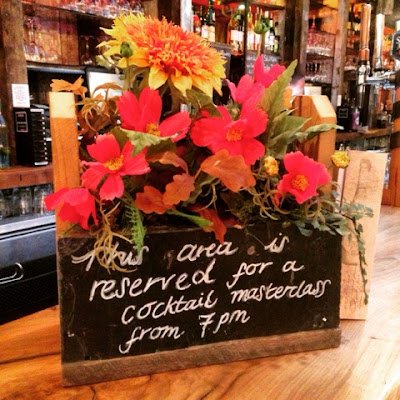 This area is
reserved for a
cocktail masterclass
from 7pm